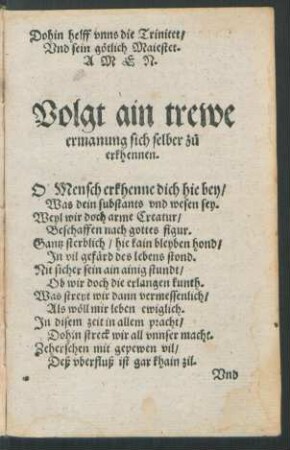 Dohin helff vnns die Trinitet/
Vnd sein götlich Maiestet.
A M E N.
Volgt ain trewe
ermanung sich selber zů
erkhennen.
O Mensch erkhenne dich hie bey/
Was dein substants vnd wesen sey.
Weyl wir doch arme Creatur/
Beschaffen nach gottes figur.
Gantz sterblich/ hie kain bleyben hond/
In vil gefärd des lebens stond.
Nit sicher sein ain ainig stundt/
Ob wir doch die erlangen kunth.
Was streyt wir dann vermessenlich/
Als wöll mir leben ewiglich.
In disem zeit in allem pracht/
Dohin streck wir all vnnser macht.
Zeherschen mit gepewen vil/
Deß vberfluß ist gar khain zil.
Vnd